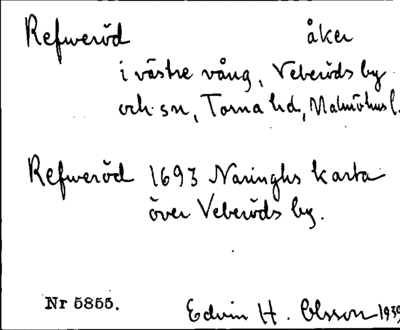 Refweröd åker
i västre vång, Veberöds by
och sn, Torna hd, Malmöhus l.
Refweröd 1693 Naringhs karta
över Veberöds by.
Nr 5855.
Edvin H. Olsson 1939